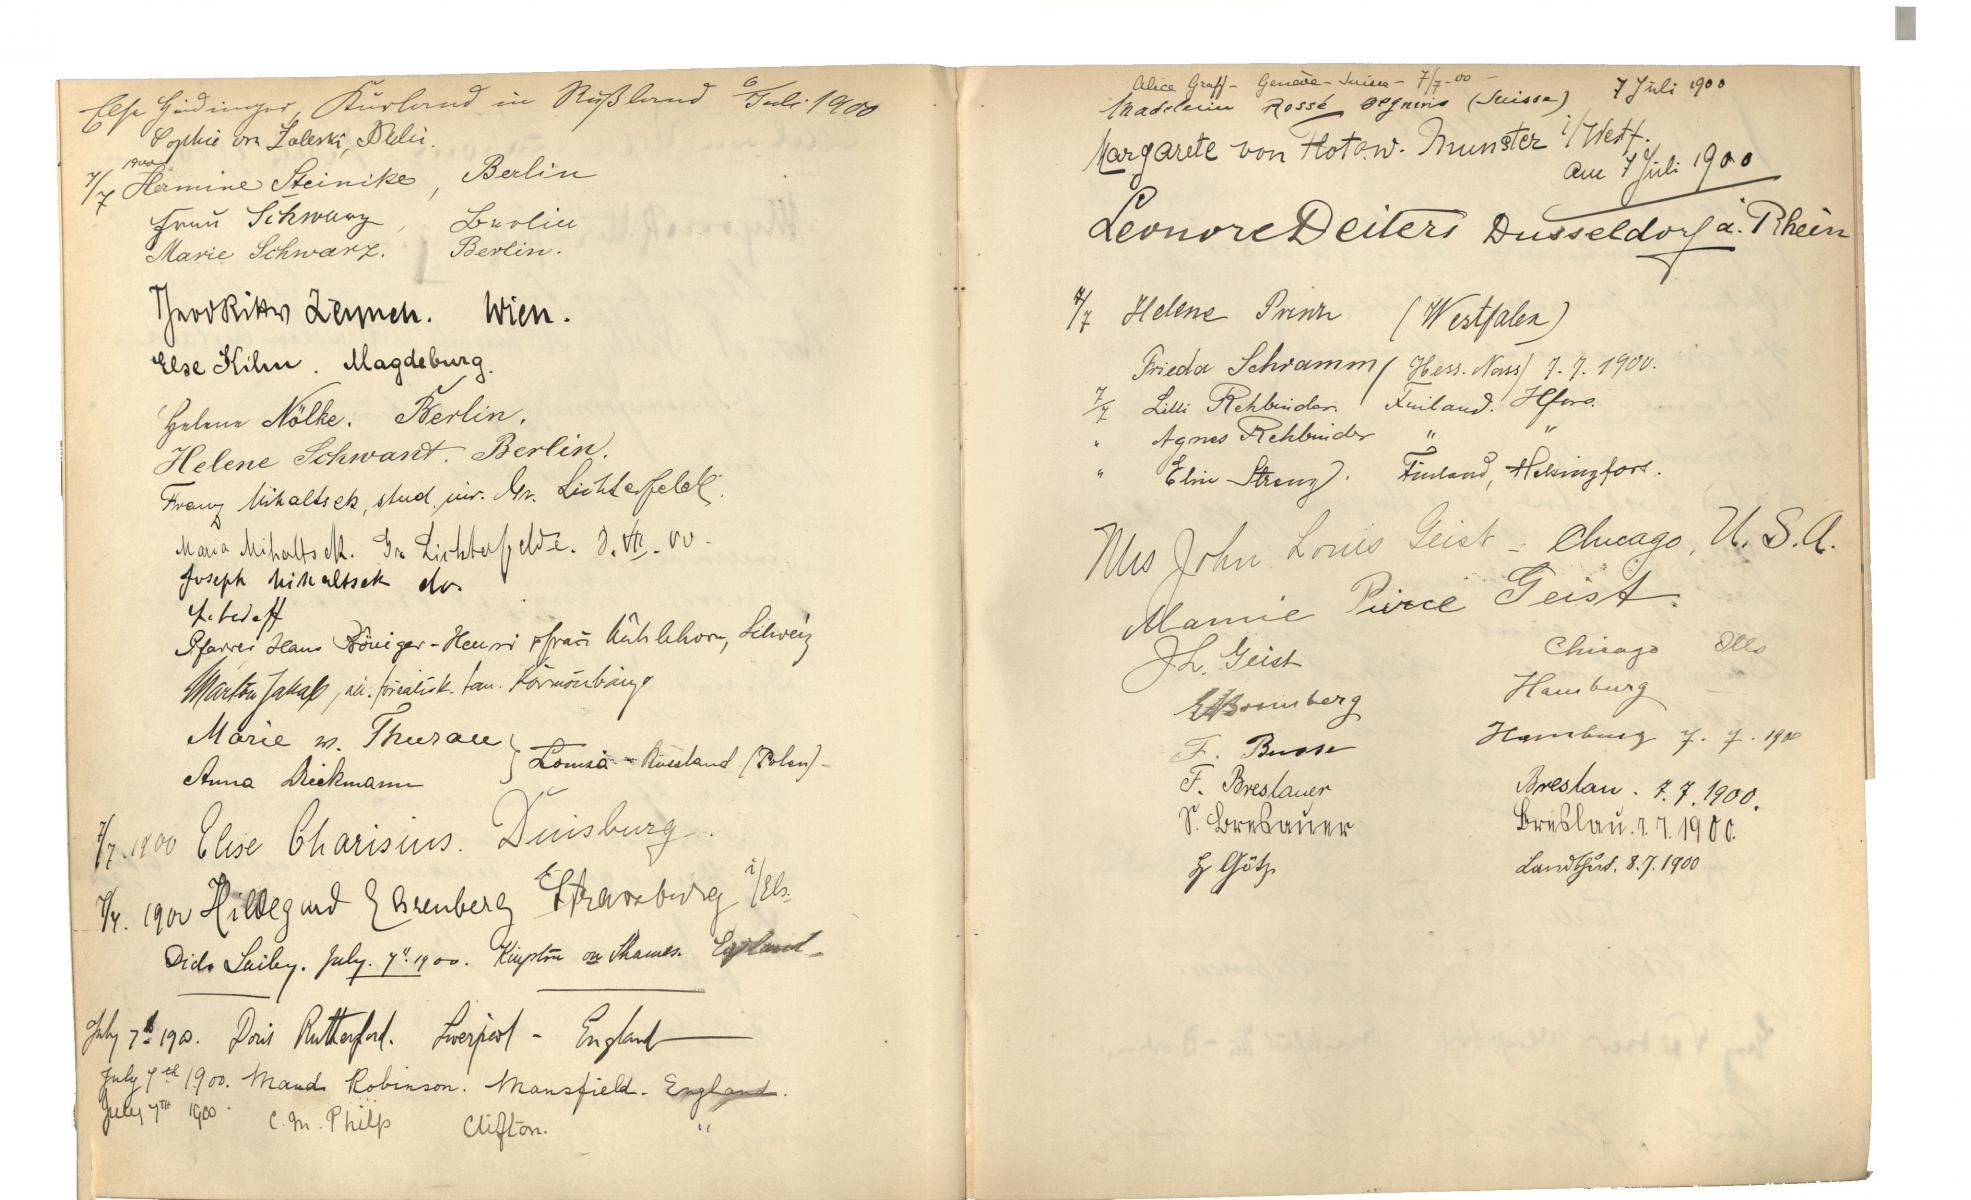 Else Kurland in Rußland 6 Juli 1900
Sophie von Zaleski,
7/7 1900 Hermine Steinike, Berlin
Frau Schwarz, Berlin
Marie Schwarz. Berlin.
Wien.
Else Kihn. Magdeburg.
Helene Nölke. Berlin.
Helene Schwandt. Berlin.
Franz Mihaltsek, stud. jur. Gr. Lichterfelde.
Maria Mihaltsek. Gr. Lichterfelde. VII. 00.
Joseph Mihaltsek do.
Lebedeff
Pfarrer Hans Höniger-Henni & Frau Mühlehorn, Schweiz
Márton Jakab,
Marie v. Thurau
Anna Dieckmann
Lomża - Russland (Polen)-
7/7. 1900 Elise Charisius. Duisburg.
7/7. 1900 Hildegard Ehrenberg Strassburg i/Els.
Dido Lailey. July. 7th. 1900. Kingston on Thames. England -
July 7th 1900. Doris Rutherford. Liverpool - England
July 7th 1900. Maud Robinson. Mansfield. England.
July 7TH 1900. C. M. Philp Clifton. "
Alice Graff - Genève - Suisse - 7/7-00 -
Madeleine Rossé (Suisse) 7 Juli 1900
Margarete von Münster i/Westf.
am 7 Juli 1900
Leonore Deiters Dusseldorf a. Rhein
7/7 Helene Prinz (Westfalen)
Frieda Schramm (Hess. Nass) 7. 7. 1900.
7/7 Lilli Rehbinder. Finland. Hfors.
" Agnes Rehbinder " "
" Elin Streng. Finland, Helsingfors.
Mrs John Louis Geist - Chicago, U. S. A.
Mamie Pierce Geist.
J L. Geist Chicago Ills
Bromberg Hamburg
F. Busse Hamburg 7. 7. 1900
F. Breslauer Breslau. 7. 7. 1900.
S. Breslauer Breslau. 7. 7. 1900.
Götz Landshut. 8. 7. 1900